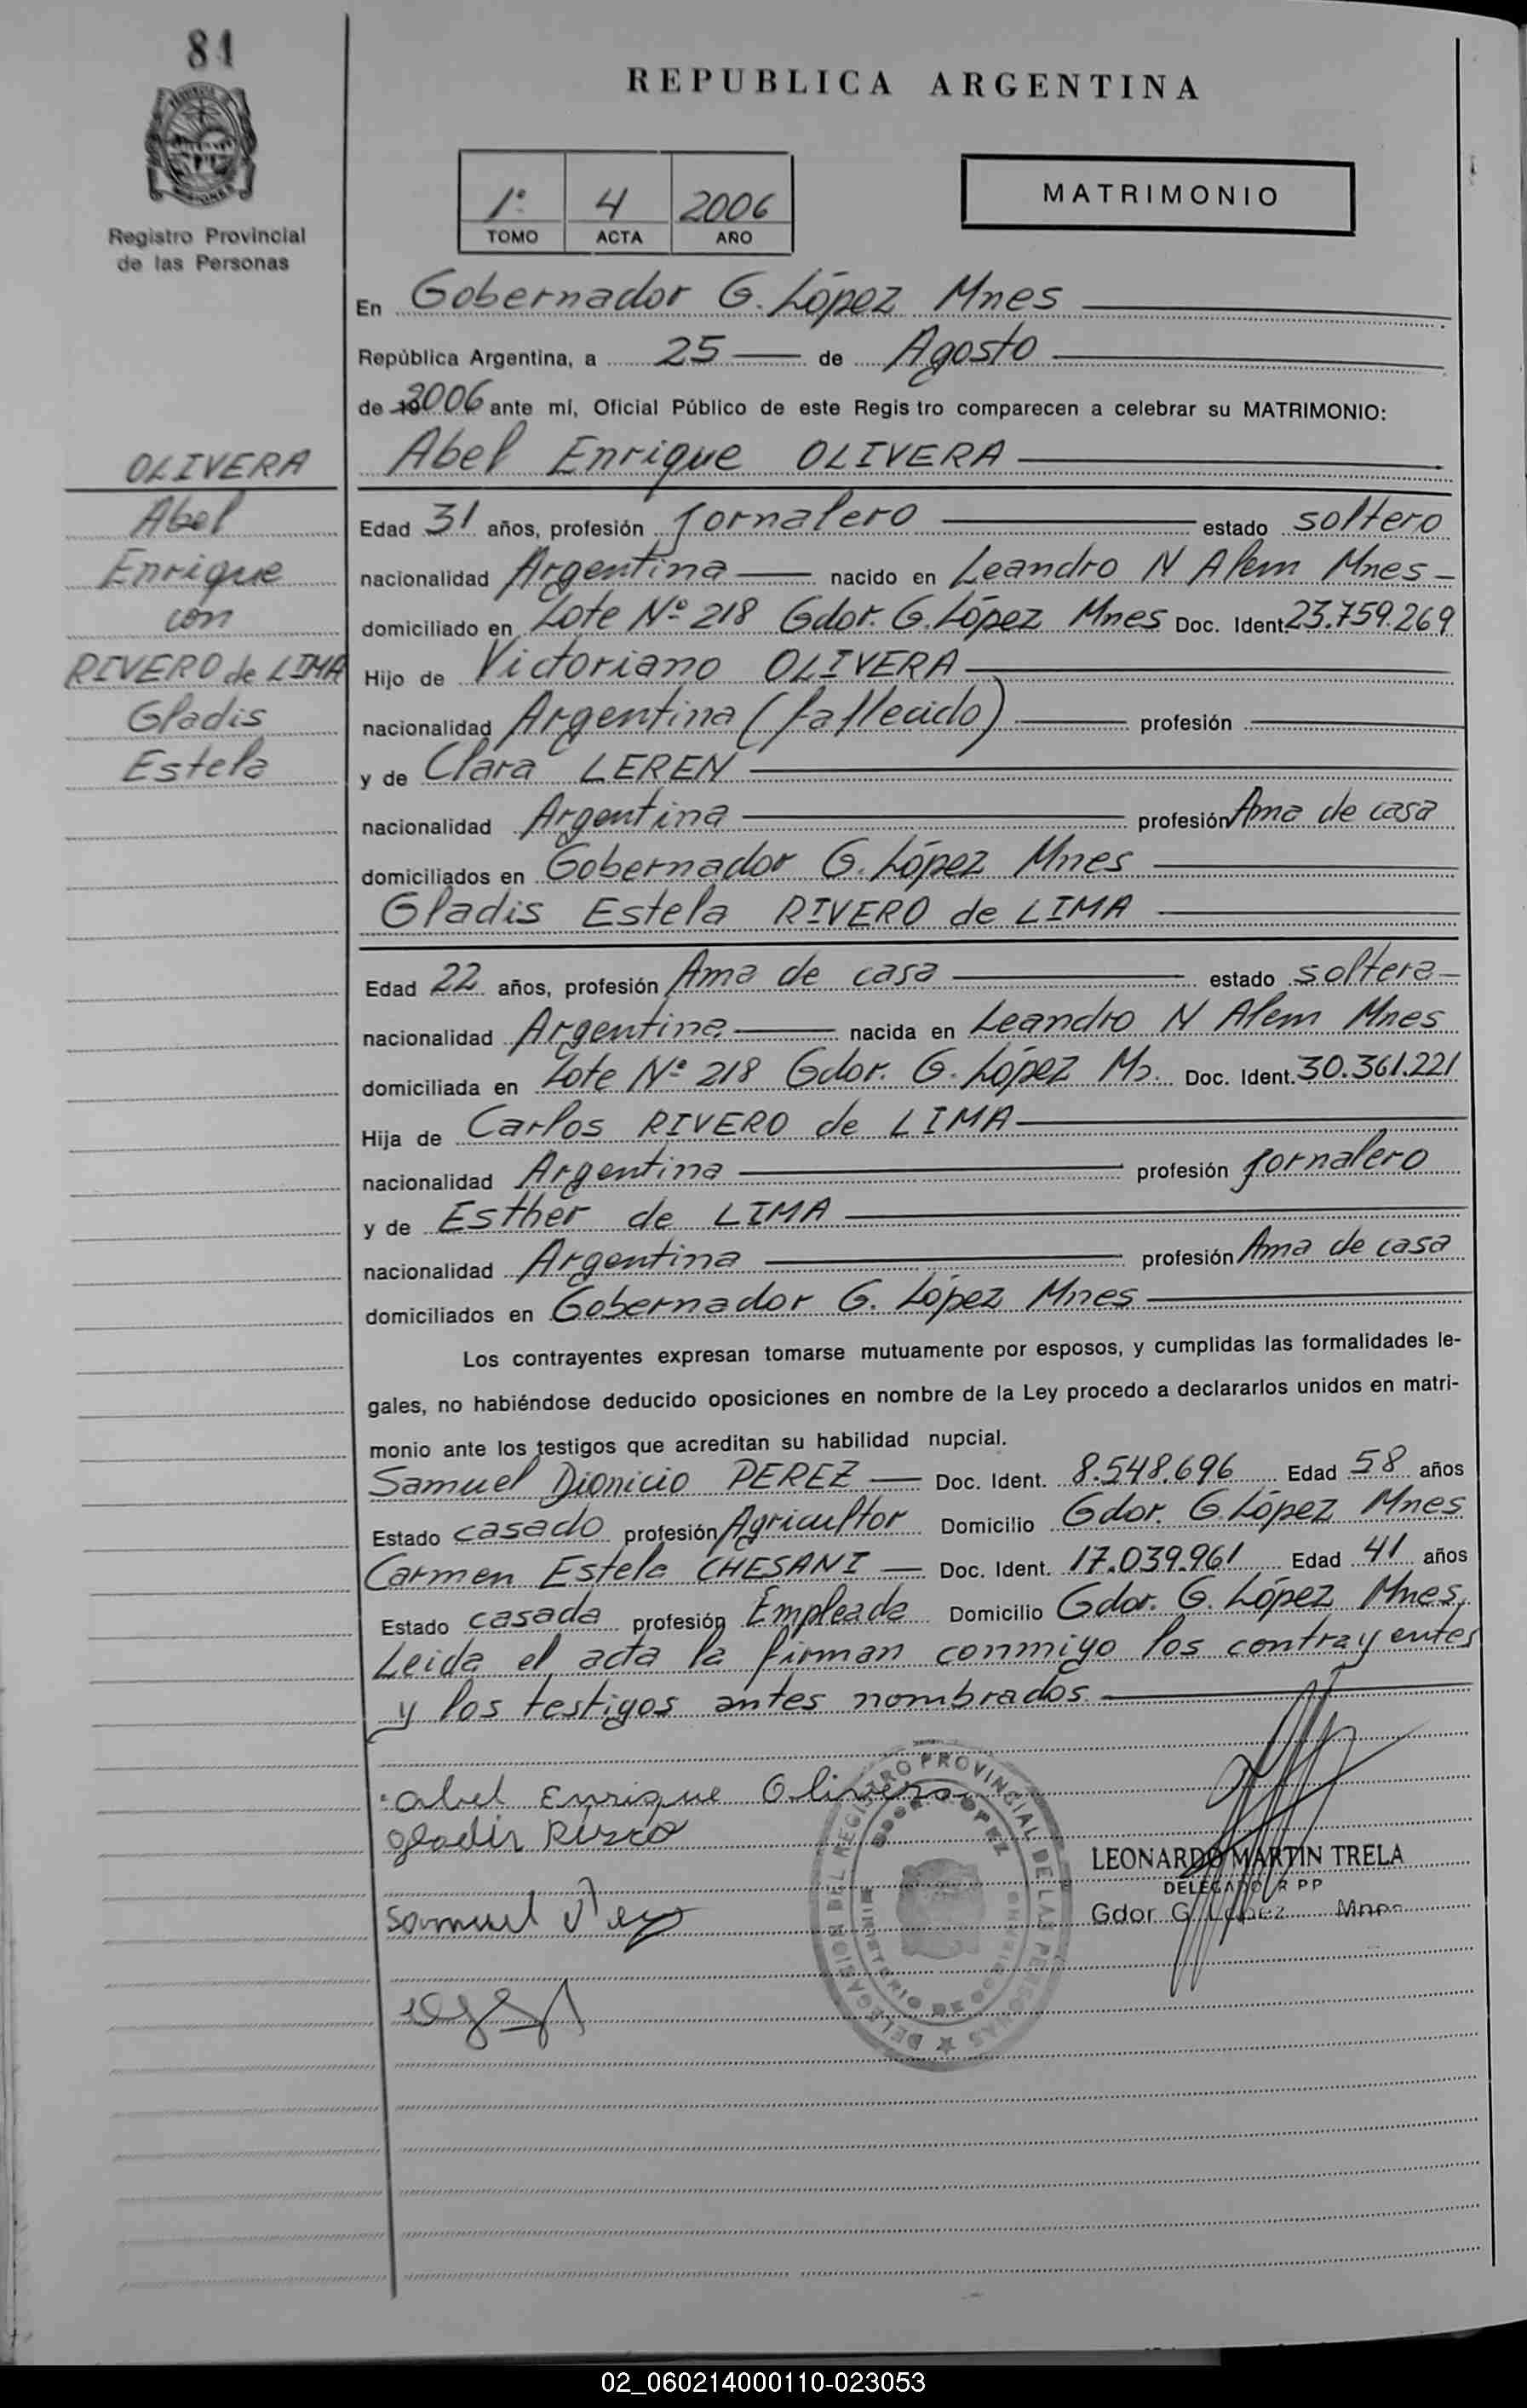 81
REPUBLICA ARGENTINA
MATRIMONIO
1º 4 2006
TOMO ACTA AÑO
Registro Provincial
de las Personas
En Gobernador G. López Mnes
República Argentina, a 25 de Agosto
de 2006 ante mí, Oficial Público de este Regis tro comparecen a celebrar su MATRIMONIO:
OLIVERA
Abel
Enrique
con
RIVERO de LIMA
Gladis
Estela
Abel Enrique OLIVERA
Edad 31 años, profesión Jornalero estado soltero
nacionalidad Argentina nacido en Leandro N Alem Mnes
domiciliado en Lote Nº 218 Gdor. G. López Mnes Doc. Ident. 23.759.269
Hijo de Victoriano OLIVERA
nacionalidad Argentina (fallecido) profesión
y de Clara LEREN
nacionalidad Argentina profesión Ama de casa
domiciliados en Gobernador G. López Mnes
Gladis Estela RIVERO de LIMA
Edad 22 años, profesión Ama de casa estado soltera
nacionalidad Argentina nacida en Leandro N Alem Mnes
domiciliada en Lote Nº 218 Gdor. G. López Ms. Doc. Ident. 30.361.221
Hija de Carlos RIVERO de LIMA
nacionalidad Argentina profesión Jornalero
y de Esther de LIMA
nacionalidad Argentina profesión Ama de casa
domiciliados en Gobernador G. López Mnes
Los contrayentes expresan tomarse mutuamente por esposos, y cumplidas las formalidades le-
gales, no habiéndose deducido oposiciones en nombre de la Ley procedo a declararlos unidos en matri-
monio ante los testigos que acreditan su habilidad nupcial.
Samuel Dionicio PEREZ Doc. Ident. 8.548.696 Edad 58 años
Estado casado profesión Agricultor Domicilio Gdor. G. López Mnes
Carmen Estela CHESANI Doc. Ident. 17.039.961 Edad 41 años
Estado casada profesión Empleada Domicilio Gdor. G. López Mnes,
Leida el acta la firman conmigo los contrayentes
y los testigos antes nombrados.
Abel Enrique Olivera
Gladis
Samuel
DELEGACION DEL REGISTRO PROVINCIAL DE LAS PERSONAS
GDOR. G. LOPEZ
MINISTERIO DE GOBIERNO
LEONARDO MARTIN TRELA
DELEGADO R P P
Gdor G López Mnes
02_060214000110-023053